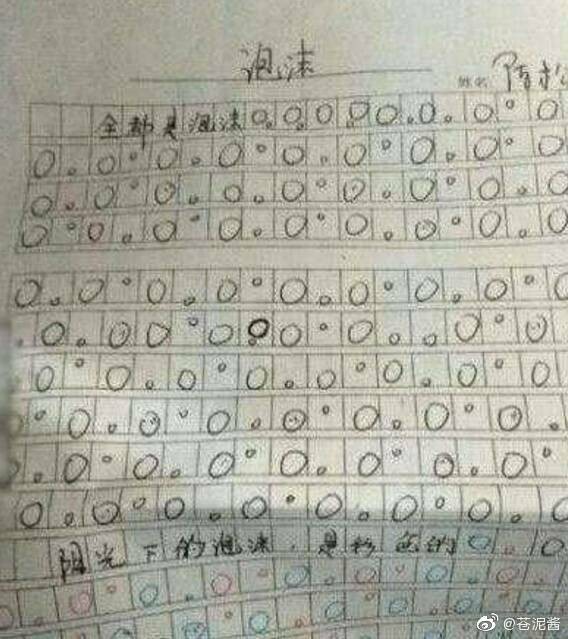 泡沫
姓名
全都是泡沫
阳光下的泡沫，是彩色的
@苍泥酱